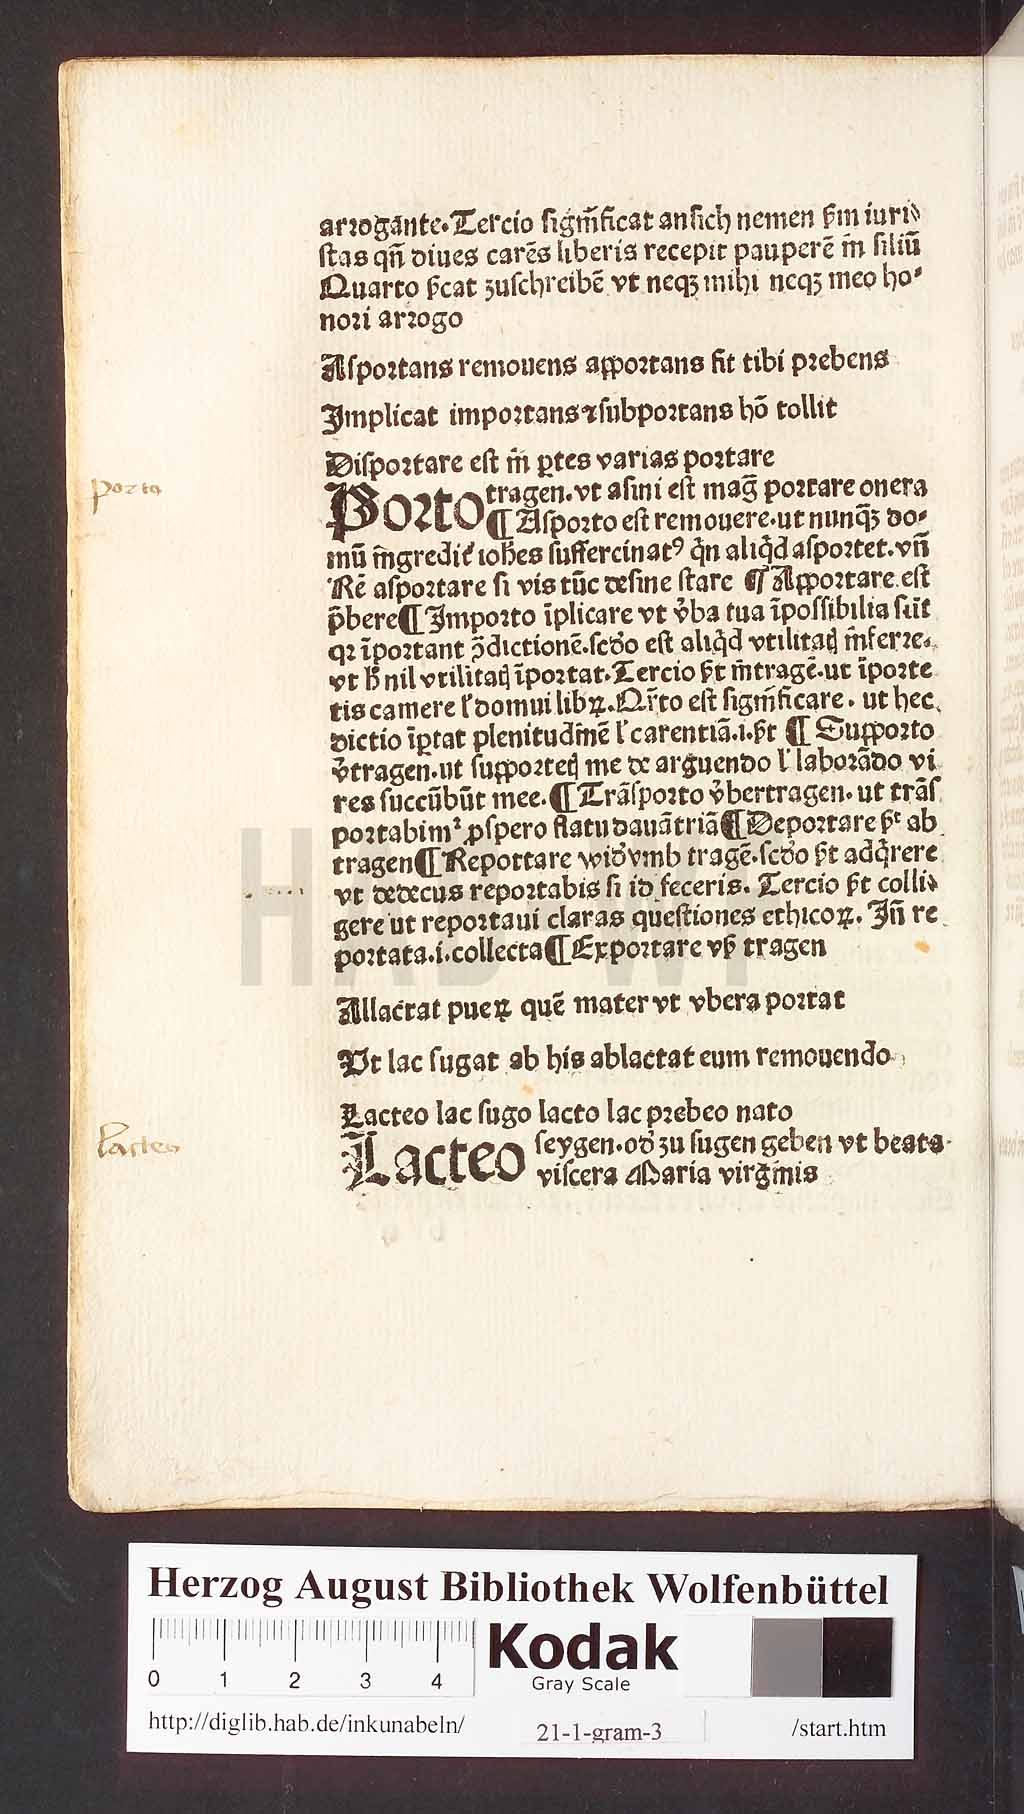 arrogāte. Tercio sigm̄ficat ansich nemen ẜm iuri⸗
stas qn̄ diues carēs liberis recepit pauperē in̄ filiū
Quarto ẜcat zuschreibē vt neqꝫ mihi neqꝫ meo ho⸗
nori arrogo
Asportans remouens apportans fit tibi prebens
Implicat importans ⁊ subportans hō tollit
Disportare est in̄ ꝑtes varias portare
Porto
Porto tragen. vt asini est maḡ portare onera
¶ Asporto est remouere. ut nunq̄ꝫ do⸗
mū in̄gredit᷑ ioħes suffercinatꝰ q̇n aliq̇d asportet. vn̄
Rē asportare si vis tūc desine stare ¶ Apportare est
p̄bere ¶ Importo īplicare vt v̓ba tua īpossibilia sūt
qꝛ īportant ꝯ̄dictionē. scd̓o est aliq̇d vtilitatꝭ in̄ferre.
vt ħ nil vtilitatꝭ īportat. Tercio ẜt in̄tragē. ut īporte
tis camere ł domui libꝝ. Qr̄to est sigm̄ficare. ut hec
dictio īꝑtat plenitudin̄ē ł carentiā. i. ẜt ¶ Supporto
v̓tragen. ut supportetꝭ me de arguendo ł laborādo vi
res succūbūt mee. ¶ Trāsporto v̓bertragen. ut trās
portabimꝰ ꝓspero flatu dauātriā ¶ Deportare ẜt ab
tragen ¶ Reportare wid̓vmb tragē. scd̓o ẜt adq̇rere
vt dedecus reportabis si id feceris. Tercio ẜt colli⸗
gere ut reportaui claras questiones ethicoꝝ. In̄ re
portata. i. collecta ¶ Exportare vß tragen
Allactat pueꝝ quē mater vt vbera portat
Vt lac sugat ab his ablactat eum remouendo
Lacteo lac sugo lacto lac prebeo nato
Lacteo
Lacteo seygen. od̓ zu sugen geben vt beata
viscera Maria virgin̄is
HAB WF
Herzog August Bibliothek Wolfenbüttel
0 1 2 3 4
Kodak
Gray Scale
http://diglib.hab.de/inkunabeln/ 21-1-gram-3 /start.htm